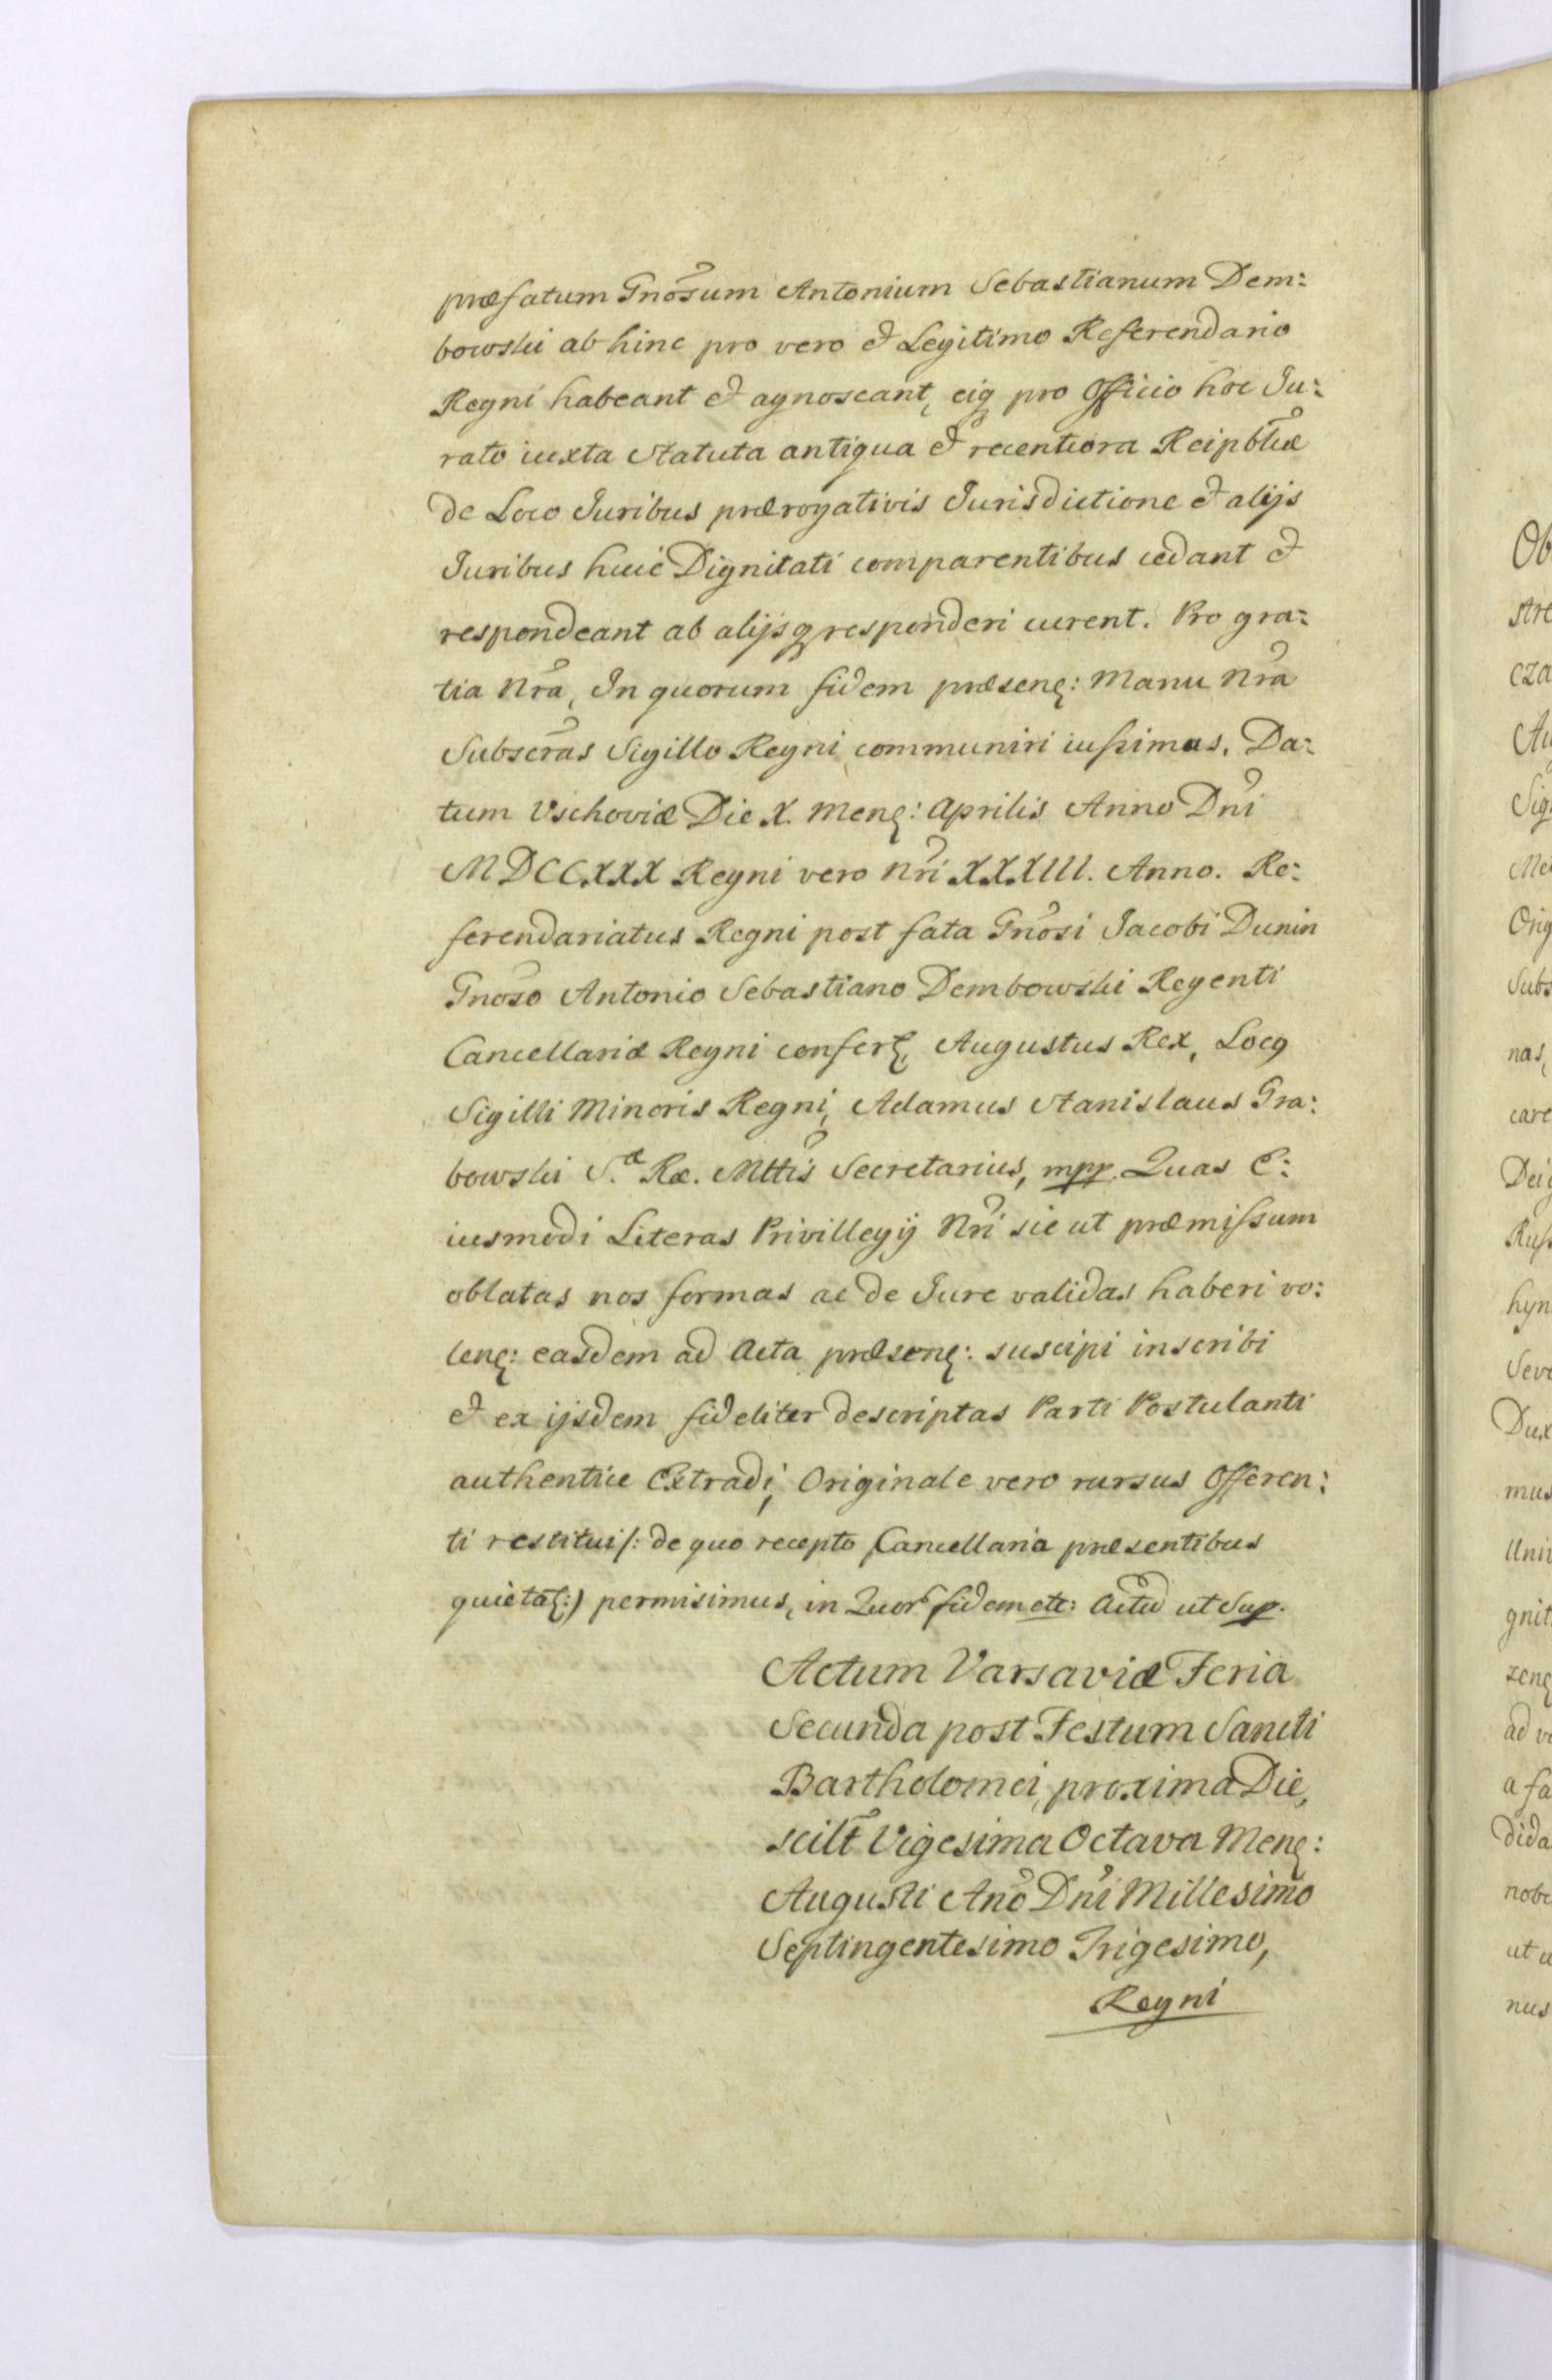 præfatum Gnõsum Antonium Sebastianum Dem:
bowski ab hinc pro vero & Legitimo Referendario
Regni habeant & agnoscant, eiq pro Officio hoc Ju:
rato iuxta Statuta antiqua & recentiora Reipblicæ
de Loco Juribus prærogativis Jurisdictione & alijs
Juribus huic Dignitati comparentibus cedant &
respondeant ab alijsq responderi curent. Pro gra:
tia Nra, In quorum fidem præsenę: Manu Nra
Subscras Sigillo Regni communiri iussimus. Da:
tum Vschoviæ Die X. Menę: Aprilis Anno Dni
MDCCXXX Regni vero Nri XXXIII. Anno. Re:
ferendariatus Regni post fata Gnosi Jacobi Dunin
Gnoso Antonio Sebastiano Dembowski Regenti
Cancellariæ Regni conferę, Augustus Rex, Locq
Sigilli Minoris Regni, Adamus Stanislaus Gra:
bowski S.æ Ræ. Mttis Secretarius, mpp. Quas E:
iusmodi Literas Privillegij Nri sic ut præmissum
oblatas nos formas ac de Jure validas haberi vo:
lenę: easdem ad Acta præsenę: suscipi inscribi
& ex ijsdem fideliter descriptas Parti Postulanti
authentice Extradi, Originale vero rursus Offeren:
ti restitui /: de quo recepto Cancellaria præsentibus
quietaę:) permisimus, in Quor fidem etc: Actu ut Sup.
Actum Varsaviæ Feria
Secunda post Festum Sancti
Bartholomei, proxima Die,
scilt Vigesima Octava Menę:
Augusti Ano Dni Millesimo
Septingentesimo Trigesimo,
Regni
Ob
stre
cza
Au
Sig
Me
Orig
Subs
nas,
care
Dei
Russ
hyn
Seve
Dux
mus
Uni
gnit
zenę
ad v
a fa
dida
nobi
ut u
nus